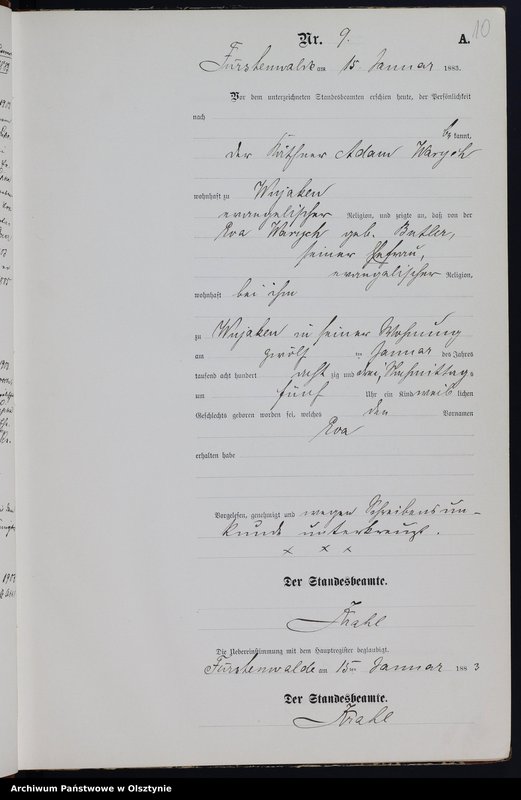 10
Nr. 9. A.
Fürstenwalde am 15 Januar 1883.
Vor dem unterzeichneten Standesbeamten erschien heute, der Persönlichkeit
nach
bekannt,
der Käthner Adam Warych
wohnhaft zu Wujaken
evangelischer Religion, und zeigte an, daß von der
geb. Butler,
seiner Ehefrau,
evangelischer Religion,
wohnhaft bei ihm
zu Wujaken in seiner Wohnung
am zwölf ten Januar des Jahres
tausend acht hundert acht zig und drei, Nachmittags
um fünf Uhr ein Kind weib lichen
Geschlechts geboren worden sei, welches den Vornamen
erhalten habe
Vorgelesen, genehmigt und wegen Schreibensun-
kunde unterkreuzt.
x x x
Der Standesbeamte.
Krahl
Die Uebereinstimmung mit dem Hauptregister beglaubigt.
Fürstenwalde am 15ten Januar 1883
Der Standesbeamte.
Krahl
Archiwum Państwowe w Olsztynie